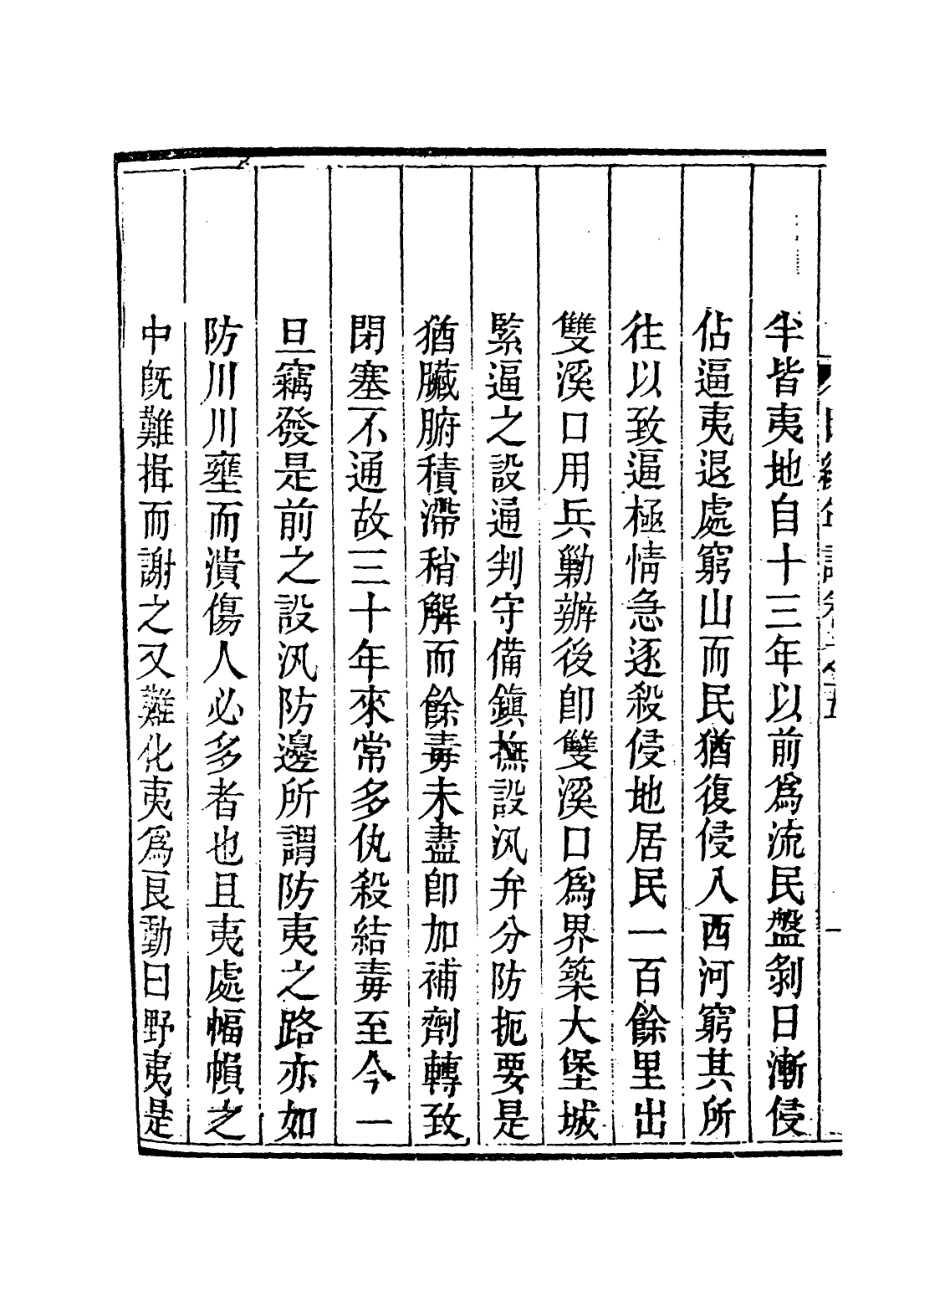 半皆夷地自十三年以前爲流民盤剝日漸侵
佔逼夷退處窮山而民猶復侵入西河窮其所
往以致逼極情急逐殺侵地居民一百餘里出
雙溪口用兵勦辦後卽雙溪口爲界築大堡城
緊逼之設通判守備鎮撫設汛弁分防扼要是
猶臟腑積滯稍解而餘毒未盡卽加補劑轉致
閉塞不通故三十年來常多仇殺結毒至今一
旦竊發是前之設汛防邊所謂防夷之路亦如
防川川壅而潰傷人必多者也且夷處幅幀之
中旣難揖而謝之又難化夷爲良動曰野夷是